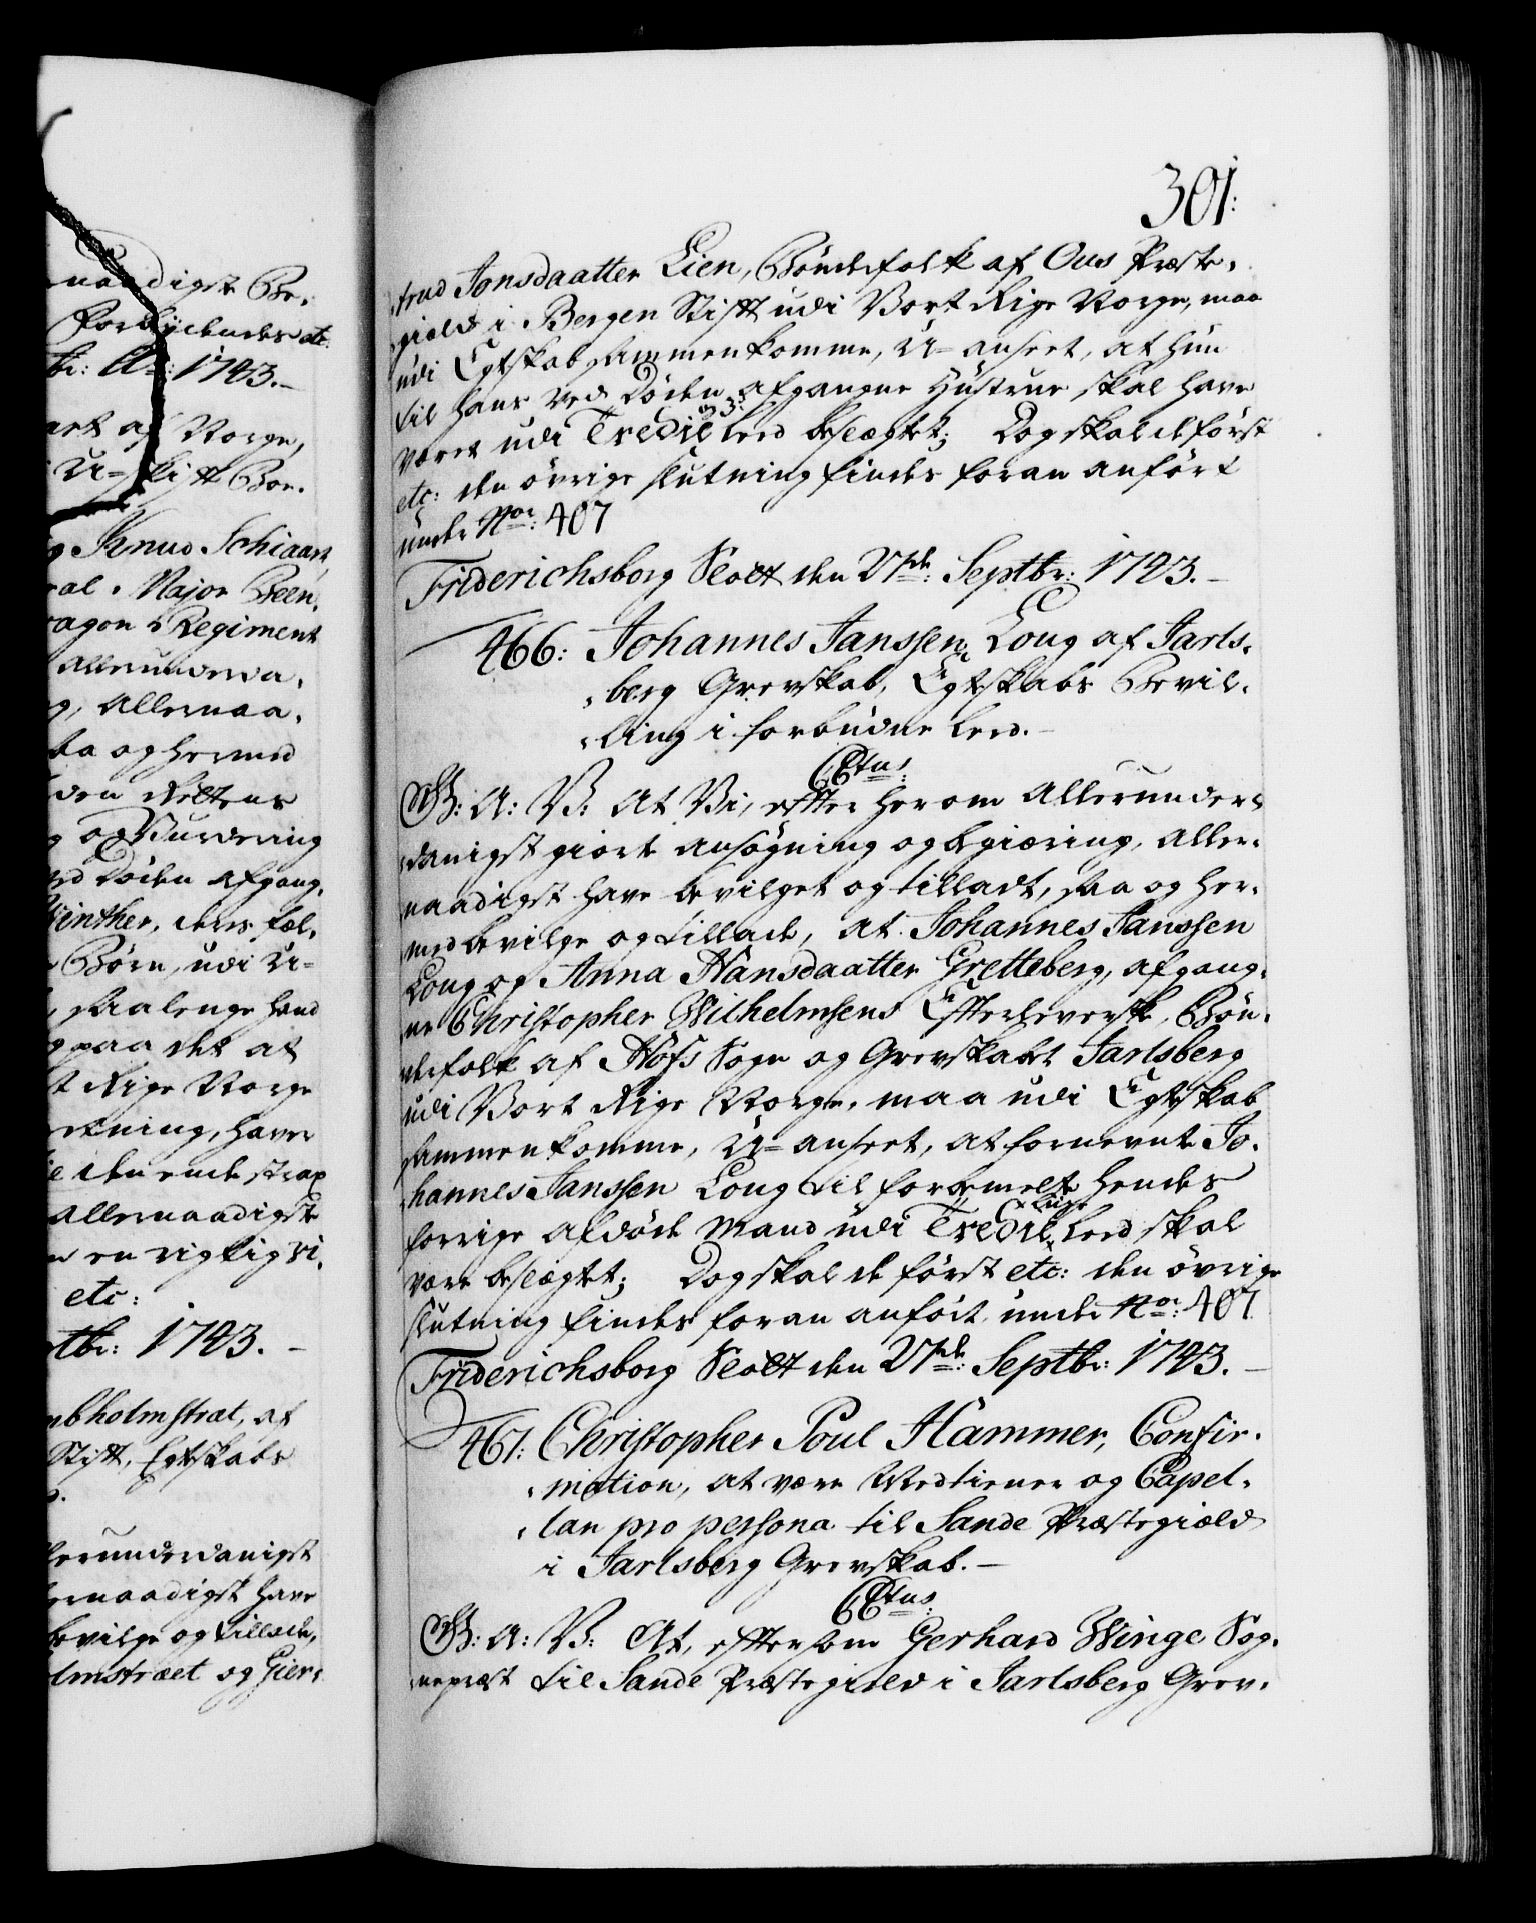 naadigst Be-
forbydendes etc:
br: Ao: 1743.-
art af Norge,
U-skift Boe.
g Knud Schiaart
ral-Major Been,
ragon Regiment
allerunderda-
g, Allernaa-
saa og hermed
den Rettens
g og Vurdering
ved Døden afgang-
Winther, deres fæl-
Børn, udi U-
saa lenge hand
g paa det at
t Rige Norge
retning, haver
denende strax
allernaadigst
en rigtig
etc:
ptbr: 1743.-
mbholmstræt, af
Stift, Egtskabs
lerunderdanigst
ernaadigst have
bevilge og tillade,
olmstræet og Gier-
301:
-trud Jonsdaatter Lien, Bøndefolk af Ous Præste-
-gield i Bergen Stift udi Vort Rige Norge, maa
udi Egtskab sammenkomme, U-anseet, at hun
til hans ved Døden afgangne Hustrue skal have
været udi Tredie og 3: Leed beslægtet; Dog skal de først
etc: den øvrige slutning findes foran anført
under No: 407
Friderichsborg Slott den 27de: Septbr: 1743.-
466: Johannes Janssen Loug af Jarls-
-berg Grevskab, Egtskabs Bevil-
-ling i forbudne Leed.-
CCtus:
G: A: V: At Vi, efter herom Allerunder-
-danigst giorte ansøgning og begiæring, aller-
naadigst have bevilget og tilladt, saa og her-
med bevilge og tillade, at Johannes Janssen
Loug og Anna Hansdaatter Gretteberg, afgang-
ne Christopher Wilhelmsens Efterleverske, Bøn-
-defolk af Hofs Sogn og Grevskabet Jarlsberg
udi Vort Rige Norge, maa udi Egtskab
sammenkomme, U-anseet, at fornevnte Jo-
-hannes Janssen Loug til formelte hendes
forrige afdøde Mand udi Tredie Lige Leed skal
være beslægtet; Dog skal de først etc: den øvrige
slutning findes foran anført under No: 407
Friderichsborg Slott den 27de: Septbr: 1743.-
467: Christopher Poul Hammer, Confir-
-mation, at være Medtiener og Capel-
-lan pro persona til Sande Præstegield
i Jarlsberg Grevskab.-
CCtus:
G: A: V: At, eftersom Gerhard Winge Sog-
-nepræst til Sande Præstegield i Jarlsberg Grev-